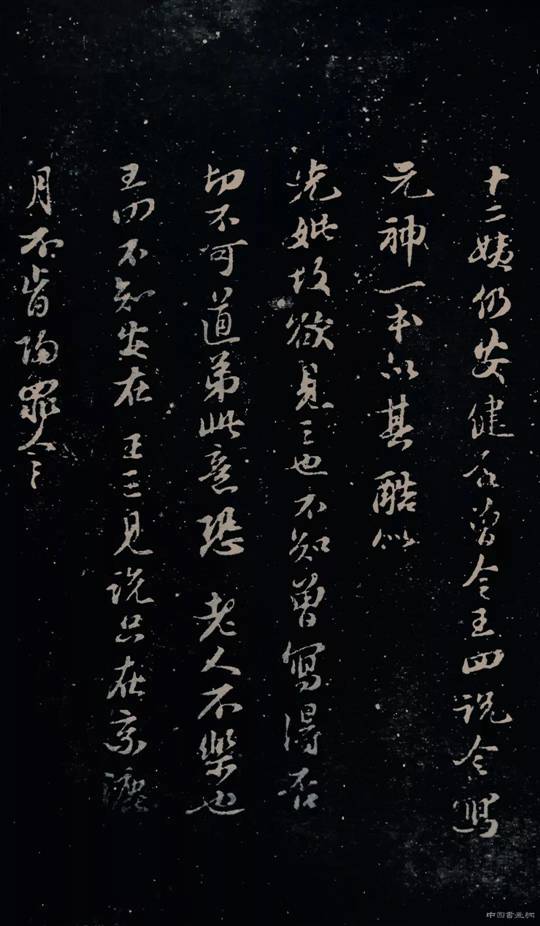 十二姨仍安健否曾令王四説令寫
元神一本以其酷似
先妣故欲見之也不知曾寫得否
切不可道弟此意恐 老人不樂也
王四不知安在 王三見説只在京
月不肯 罪人之
中国書画网